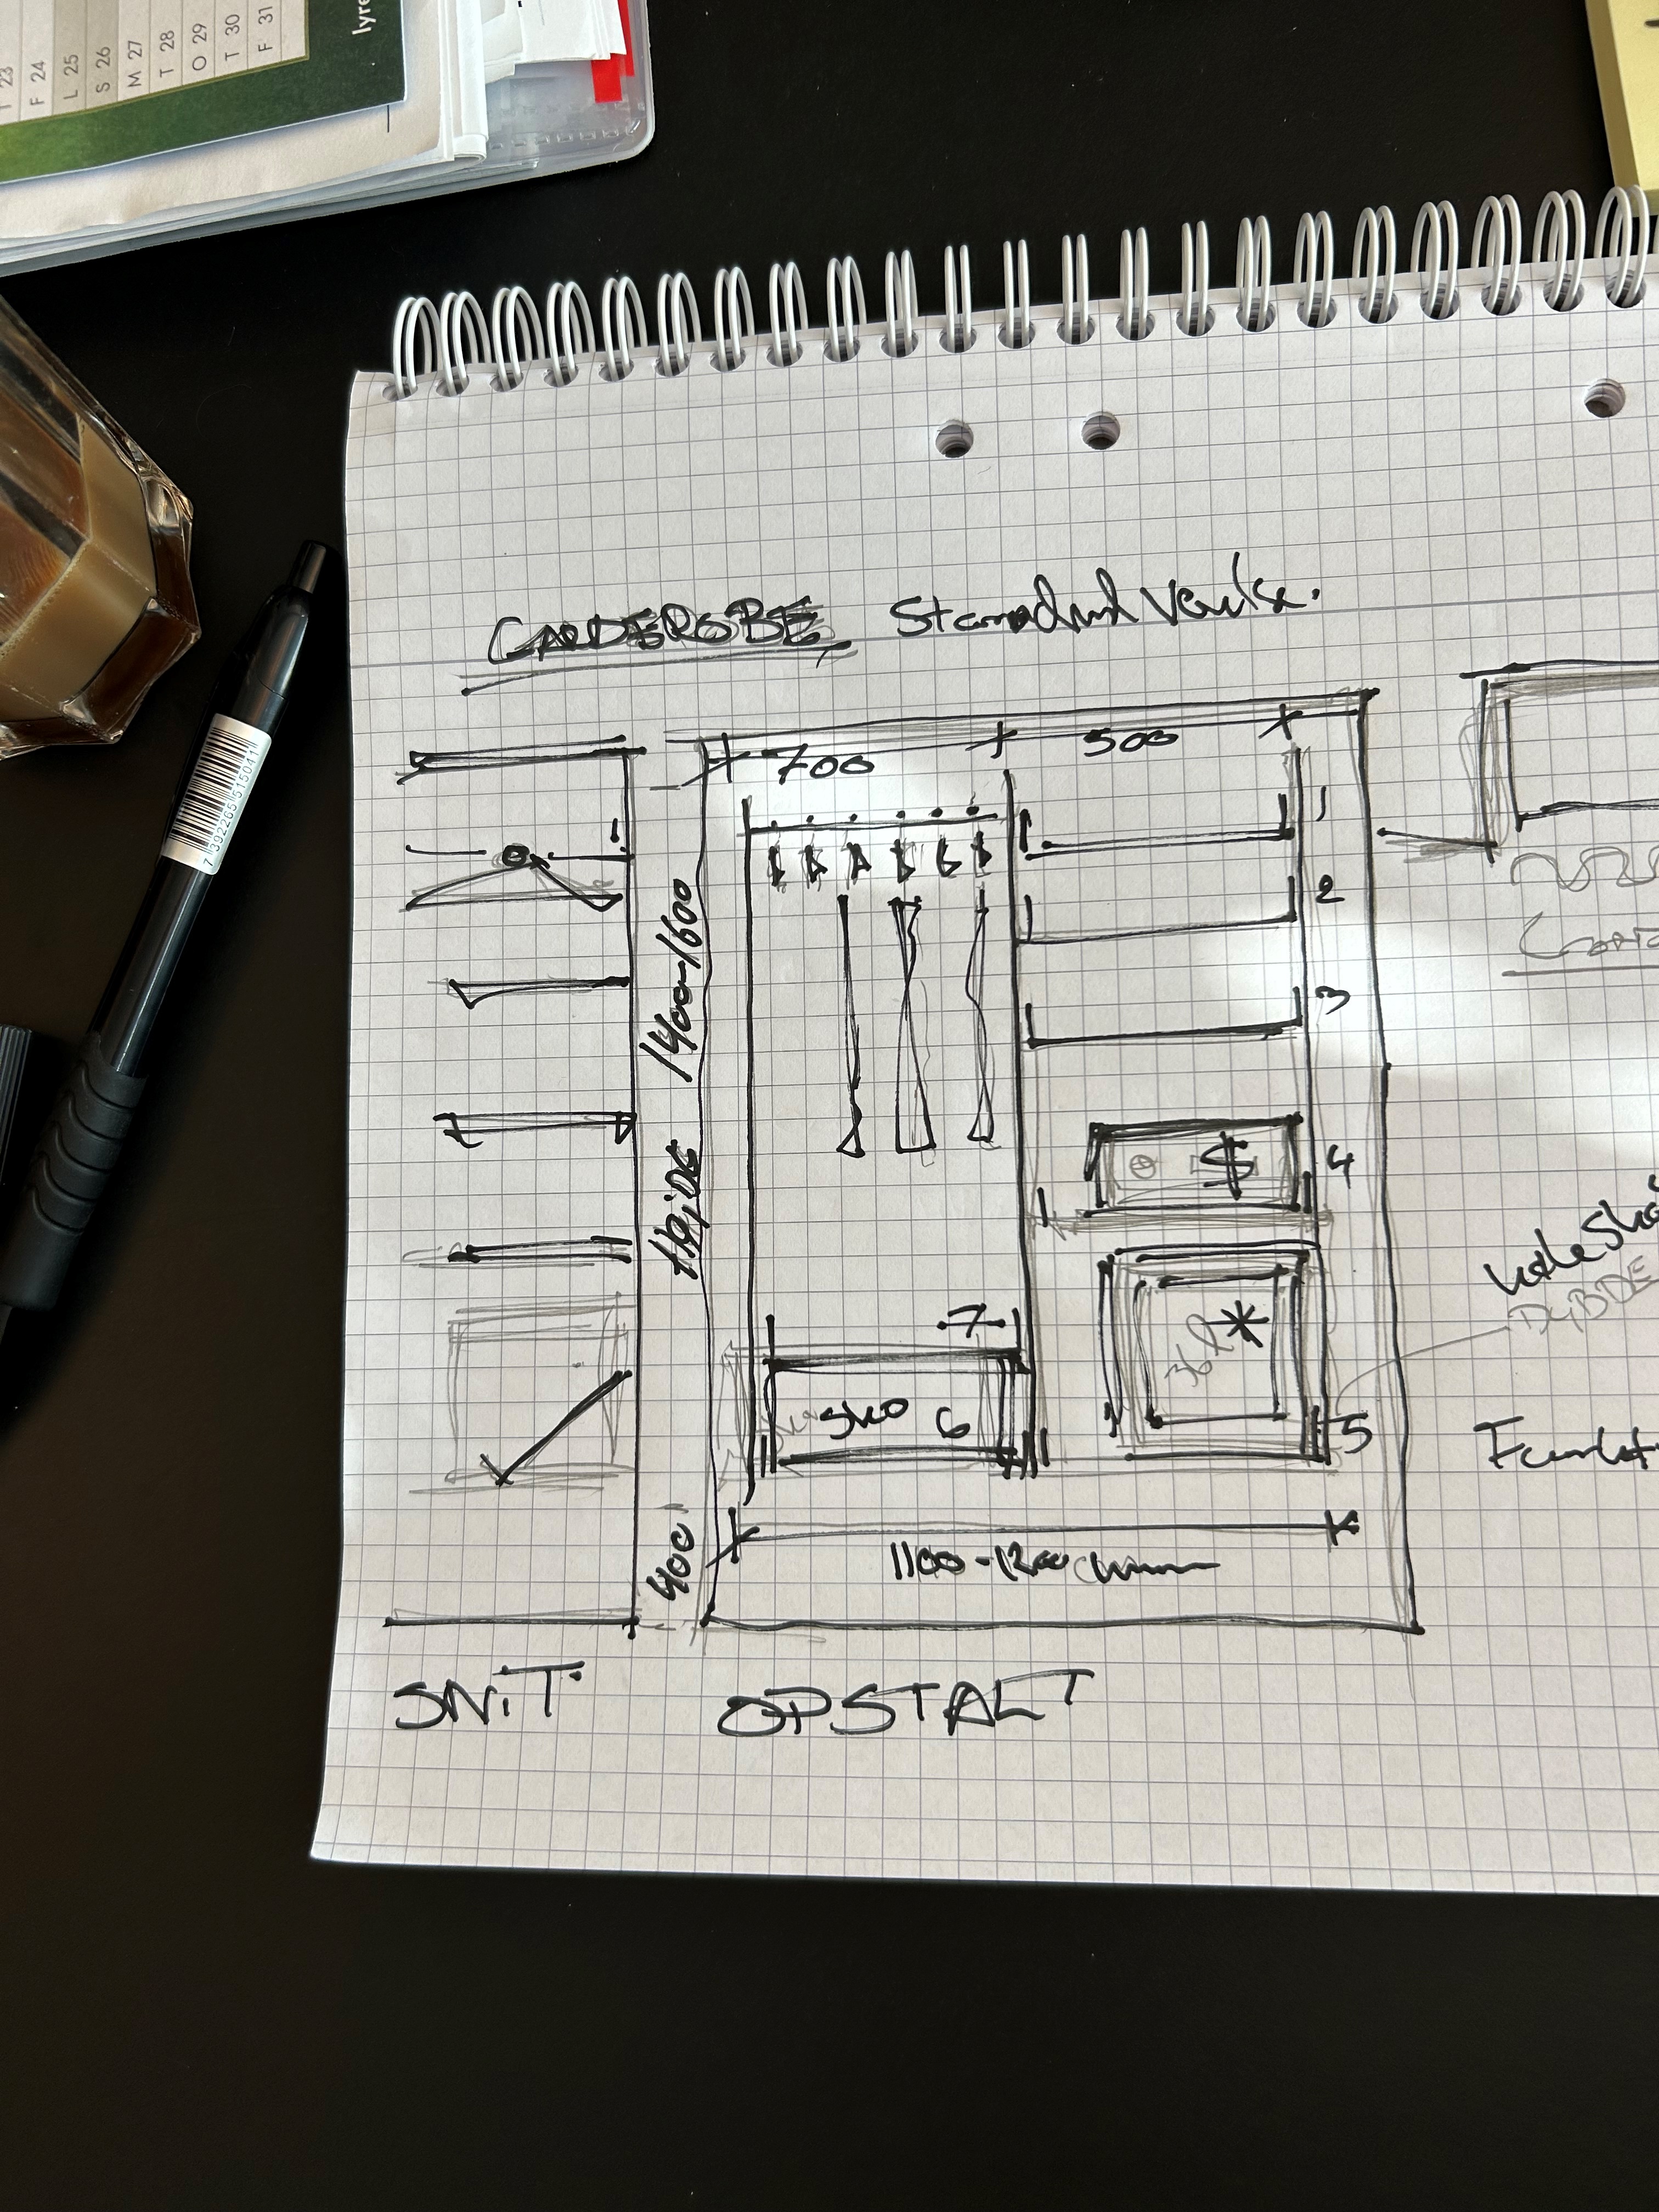 T 23
F 24
L 25
S 26
M 27
T 28
O 29
T 30
F 31
lyre
7 392265 515041
GARDEROBE Standard
700
500
1
2
3
$ 4
1400-1600
HØJDE
7
36 l *
SKO 6
5
DYBDE
400
1100-1200
SNIT
OPSTALT